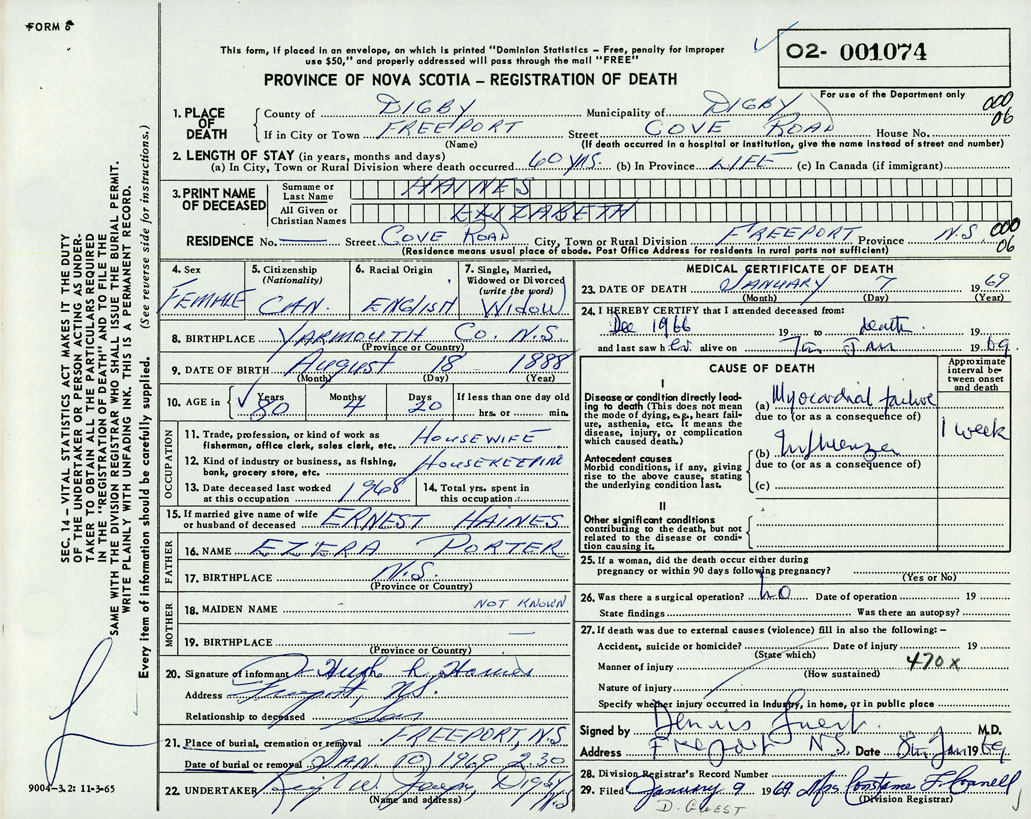 FORM 6
This form, if placed in an envelope, on which is printed "Dominion Statistics – Free, penalty for improper
use $50," and properly addressed will pass through the mail "FREE"
PROVINCE OF NOVA SCOTIA – REGISTRATION OF DEATH
02- 001074
For use of the Department only
000
06
1. PLACE OF DEATH
County of DIGBY Municipality of DIGBY
If in City or Town FREEPORT Street COVE ROAD House No.
(Name) (If death occurred in a hospital or institution, give the name instead of street and number)
2. LENGTH OF STAY (in years, months and days)
(a) In City, Town or Rural Division where death occurred 60 yrs. (b) In Province LIFE (c) In Canada (if immigrant)
3. PRINT NAME OF DECEASED
Surname or Last Name HAINES
All Given or Christian Names ELIZABETH
RESIDENCE No. — Street COVE ROAD City, Town or Rural Division FREEPORT Province N.S.
000
06
(Residence means usual place of abode. Post Office Address for residents in rural parts not sufficient)
4. Sex
FEMALE
5. Citizenship
(Nationality)
CAN.
6. Racial Origin
ENGLISH
7. Single, Married,
Widowed or Divorced
(write the word)
WIDOW
8. BIRTHPLACE YARMOUTH Co. N.S.
(Province or Country)
9. DATE OF BIRTH August 18 1888
(Month) (Day) (Year)
10. AGE in
Years Months Days If less than one day old
80 4 20 hrs. or min.
OCCUPATION
11. Trade, profession, or kind of work as
fisherman, office clerk, sales clerk, etc. HOUSEWIFE
12. Kind of industry or business, as fishing,
bank, grocery store, etc. HOUSEKEEPING
13. Date deceased last worked
at this occupation 1968
14. Total yrs. spent in
this occupation
15. If married give name of wife
or husband of deceased ERNEST HAINES
FATHER
16. NAME EZ'ERA PORTER
17. BIRTHPLACE N.S.
(Province or Country)
MOTHER
18. MAIDEN NAME NOT KNOWN
19. BIRTHPLACE —
(Province or Country)
20. Signature of informant Hugh L. Haines
Address Freeport, N.S.
Relationship to deceased Son
21. Place of burial, cremation or removal FREEPORT, N.S
Date of burial or removal JAN. 10 1969 2:30
22. UNDERTAKER Digby N.S
(Name and address)
MEDICAL CERTIFICATE OF DEATH
23. DATE OF DEATH JANUARY 7 1969
(Month) (Day) (Year)
24. I HEREBY CERTIFY that I attended deceased from:
Dec 1966 19 to death 19
and last saw her alive on Jan 1969
CAUSE OF DEATH
Approximate
interval be-
tween onset
and death
I
Disease or condition directly lead-
ing to death (This does not
mean the mode of dying, e.g., heart fail-
ure, asthenia, etc. It means the
disease, injury, or complication
which caused death.)
(a) Myocardial failure
due to (or as a consequence of)
1 week
Antecedent causes
Morbid conditions, if any, giving
rise to the above cause, stating
the underlying condition last.
(b) Influenza
due to (or as a consequence of)
(c)
II
Other significant conditions
contributing to the death, but not
related to the disease or condi-
tion causing it.
25. If a woman, did the death occur either during
pregnancy or within 90 days following pregnancy?
(Yes or No)
26. Was there a surgical operation? no Date of operation 19
State findings Was there an autopsy?
27. If death was due to external causes (violence) fill in also the following: –
Accident, suicide or homicide? Date of injury 19
(State which)
470X
Manner of injury
(How sustained)
Nature of injury
Specify whether injury occurred in industry, in home, or in public place
Signed by Dennis Guest M.D.
Address Freeport N.S. Date 8th Jan 1969
28. Division Registrar's Record Number
29. Filed January 9 1969 Mrs Constance
(Division Registrar)
D. GUEST
9004-3.2: 11-3-65
SEC. 14 – VITAL STATISTICS ACT MAKES IT THE DUTY
OF THE UNDERTAKER OR PERSON ACTING AS UNDER-
TAKER TO OBTAIN ALL THE PARTICULARS REQUIRED
IN THE "REGISTRATION OF DEATH" AND TO FILE THE
SAME WITH THE DIVISION REGISTRAR WHO SHALL ISSUE THE BURIAL PERMIT.
WRITE PLAINLY WITH UNFADING INK. THIS IS A PERMANENT RECORD.
Every item of information should be carefully supplied. (See reverse side for instructions.)